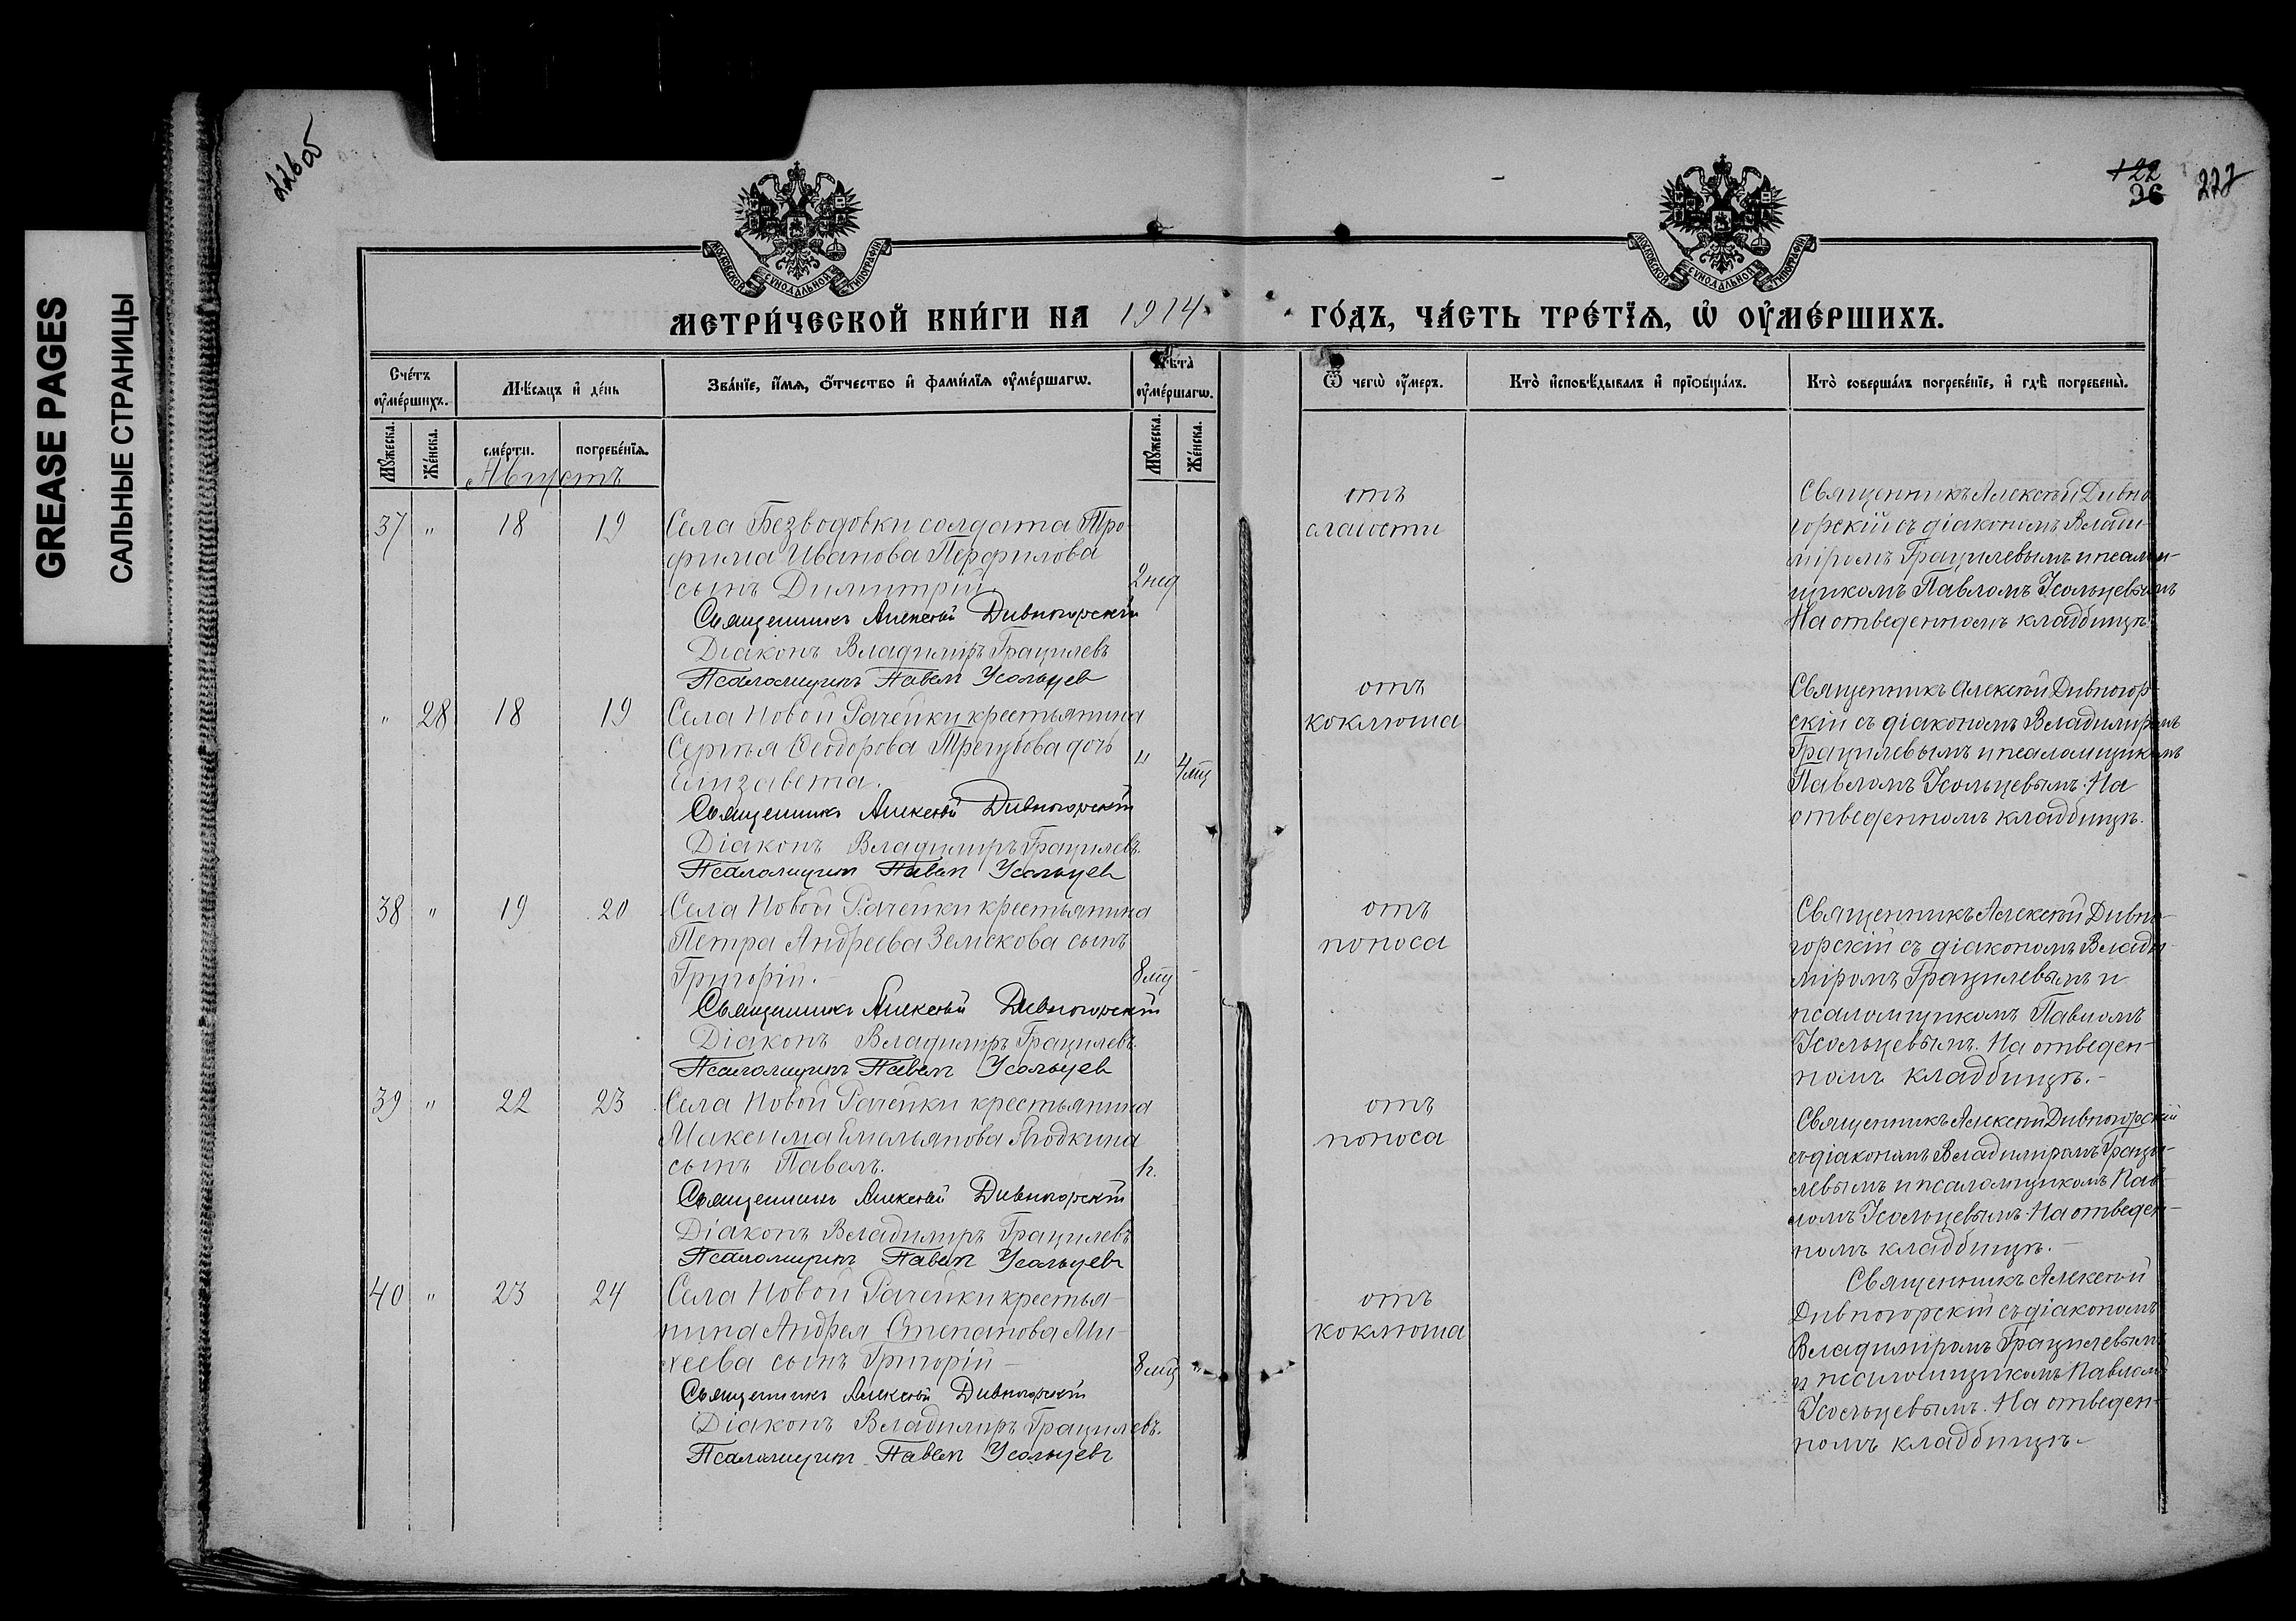 GREASE PAGES
САЛЬНЫЕ СТРАНИЦЫ
226 об
122
36
227
МОСКОВСКОЙ СУНОДАЛЬНОЙ ТИПОГРАФІИ
МОСКОВСКОЙ СУНОДАЛЬНОЙ ТИПОГРАФІИ
МЕТРИ́ЧЕСКОЙ КНИ́ГИ НА 1914
ГО́ДЪ, ЧА́СТЬ ТРЕ́ТЇѦ, Ѡ҆ ОУ҆МЕ́РШИХЪ.
Сче́тъ оу҆ме́ршихъ.
Мѣ́сяцъ и҆ де́нь
Зва́нїе, и҆́мѧ, ѻ҆́тчество и҆ фами́лїѧ оу҆ме́ршагѡ.
Лѣ̑та̀ оу҆ме́ршагѡ.
Ѿ чегѡ̀ оу҆́меръ.
Кто̀ и҆сповѣ́дывалъ и҆ прїѻбща́лъ.
Кто̀ соверша́лъ погребе́нїе, и҆ гдѣ̀ погребены̀.
Мꙋ́жеска.
Же́нска.
сме́рти.
погребе́нїѧ.
Мꙋ́жеска.
Же́нска.
Августъ
37 " 18 19
Села Безводовки солдата Тро-
фима Иванова Перфилова
сынъ Димитрій
2 нед
Священникъ Алексѣй Дивногорскій
Діаконъ Владиміръ Грацилевъ
Псаломщикъ Павелъ Усольцев
отъ
слабости
Священникъ Алексѣй Дивно
горскій съ діакономъ Влади-
міромъ Грацилевымъ и псалом-
щикомъ Павломъ Усольцевымъ
На отведенномъ кладбищѣ
" 28 18 19
Села Новой Рачейки крестьянина
Сергѣя Ѳеодорова Трегубова дочь
Елизавета.
" 4 мц
Священникъ Алексѣй Дивногорскій
Діаконъ Владиміръ Грацилевъ.
Псаломщикъ Павелъ Усольцев
отъ
коклюша
Священникъ Алексѣй Дивногор-
скій съ діакономъ Владиміромъ
Грацилевымъ и псаломщикомъ
Павломъ Усольцевымъ. На
отведенномъ кладбищѣ.
38 " 19 20
Села Новой Рачейки крестьянина
Петра Андреева Земскова сынъ
Григорій.
8 мц
Священникъ Алексѣй Дивногорскій
Діаконъ Владиміръ Грацилевъ.
Псаломщикъ Павелъ Усольцев
отъ
поноса
Священникъ Алексѣй Дивно-
горскій съ діакономъ Влади-
міромъ Грацилевымъ и
псаломщикомъ Павломъ
Усольцевымъ. На отведен-
номъ кладбищѣ.-
39 " 22 23
Села Новой Рачейки крестьянина
Максима Емельянова Ягодкина
сынъ Павелъ.
Священникъ Алексѣй Дивногорскій
Діаконъ Владиміръ Грацилевъ
Псаломщикъ Павелъ Усольцев
отъ
поноса
Священникъ Алексѣй Дивногорскій
съ діакономъ Владиміромъ Граци-
левымъ и псаломщикомъ Пав-
ломъ Усольцевымъ. На отведен-
номъ кладбищѣ.-
40 " 23 24
Села Новой Рачейки крестья-
нина Андрея Степанова Ми-
хеева сынъ Григорій-
8 мц "
Священникъ Алексѣй Дивногорскій
Діаконъ Владиміръ Грацилевъ.
Псаломщикъ Павелъ Усольцев
отъ
коклюша
Священникъ Алексѣй
Дивногорскій съ діакономъ
Владиміромъ Грацилевымъ
и псаломщикомъ Павломъ
Усольцевымъ. На отведен-
номъ кладбищѣ.-